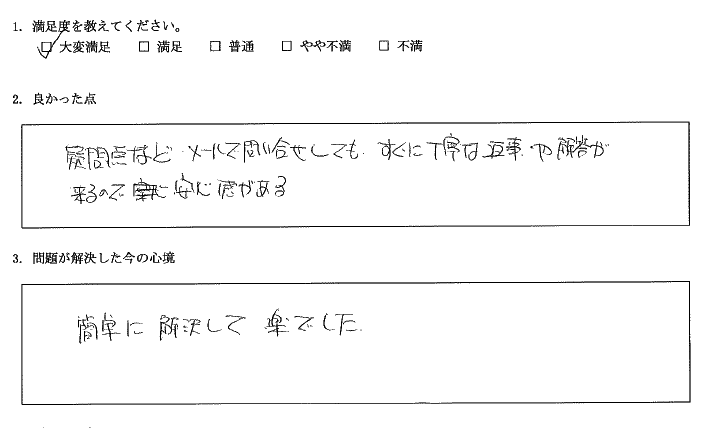 1. 満足度を教えてください。
☑ 大変満足 □ 満足 □ 普通 □ やや不満 □ 不満
2. 良かった点
疑問点など メールで問い合せしても、すぐに丁寧な返事や解答が
来るので 安心感がある
3. 問題が解決した今の心境
簡単に 解決して 楽でした。